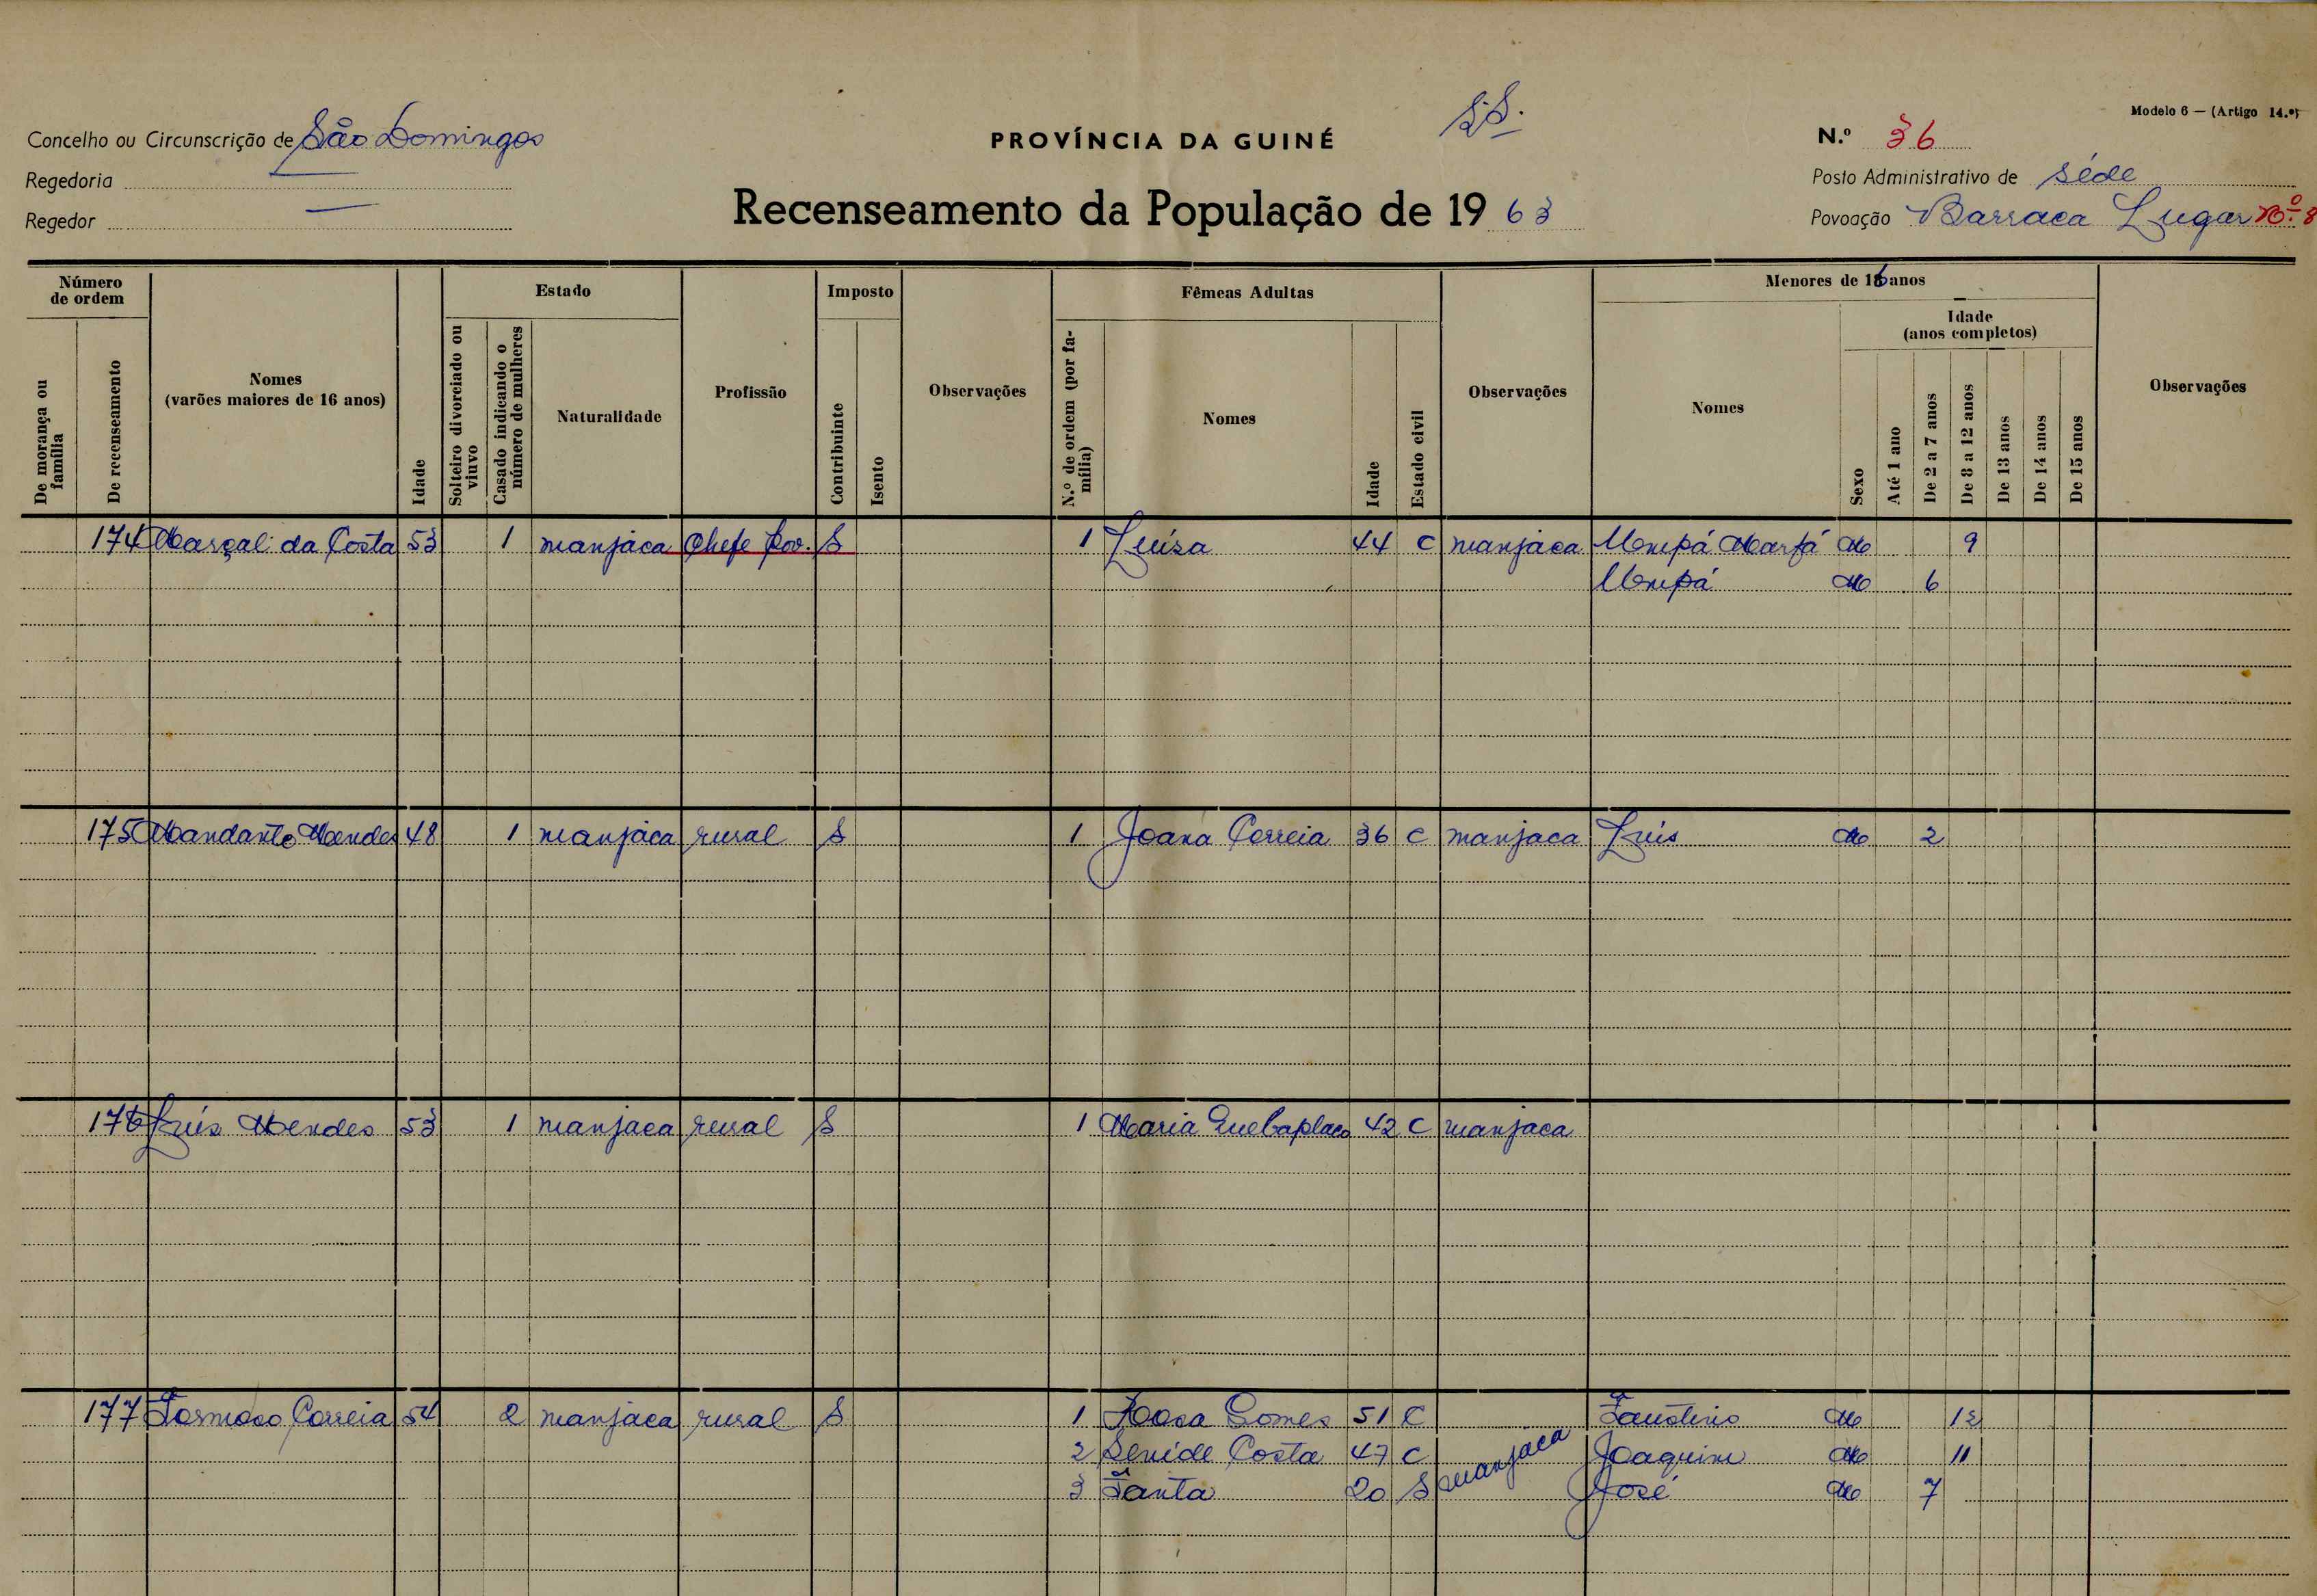 Modelo 6 — (Artigo 14.º)
Concelho ou Circunscrição de São Domingos
PROVÍNCIA DA GUINÉ
N.º 36
Regedoria —
Posto Administrativo de Séde
Regedor —
Recenseamento da População de 19 63
Povoação Barraca Lugar Nº 8
Número de ordem
De morança ou família
De recenseamento
Nomes
(varões maiores de 16 anos)
Idade
Estado
Solteiro divorciado ou viuvo
Casado indicando o número de mulheres
Naturalidade
Profissão
Imposto
Contribuinte
Isento
Observações
Fêmeas Adultas
N.º de ordem (por família)
Nomes
Idade
Estado civil
Observações
Menores de 16 anos
Nomes
Sexo
Idade
(anos completos)
Até 1 ano
De 2 a 7 anos
De 8 a 12 anos
De 13 anos
De 14 anos
De 15 anos
Observações
174 Marçal da Costa 53 1 manjaca Chefe Pov. S 1 Luísa 44 C manjaca Umpá Marfá M 9
Umpá M 6
175 Mandante Mendes 48 1 manjaca rural S 1 Joana Correia 36 C manjaca Luís M 2
176 Luís Mendes 53 1 manjaca rural S 1 Maria 42 C manjaca
177 Formoso Correia 54 2 manjaca rural S 1 Rosa Gomes 51 C Faustino M 12
2 Costa 47 C manjaca Joaquim M 11
3 Fanta 20 S José M 7